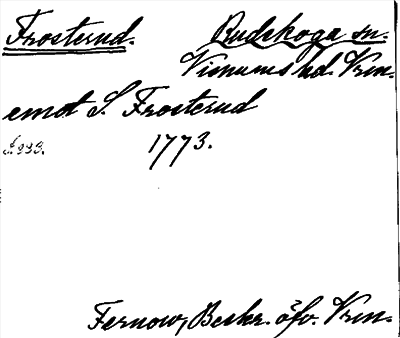 Frosterud. Rudskoga sn.
Visnums hd. Vrm.
emot S. Frosterud
1773.
Fernow, Beskr. öfv. Vrm.